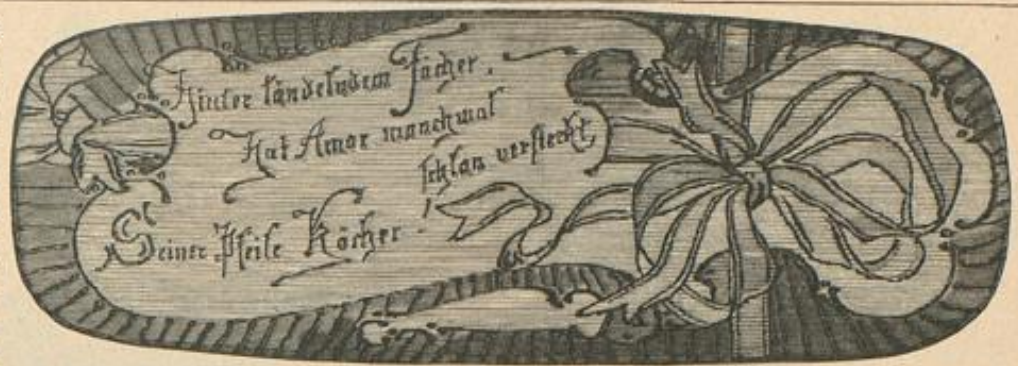 Hinter tändelndem Fächer.
Hat Amor manchmal
schlau versteckt
Seiner Pfeile Köcher.